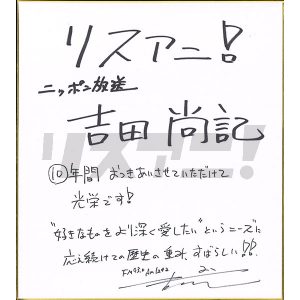 リスアニ!
ニッポン放送
吉田 尚記
⑩年間 おつきあいさせていただけて
光栄です!
"好きなものをより深く愛したい"というニーズに
応え続けての歴史の重み、すばらしい!!
リスアニ!